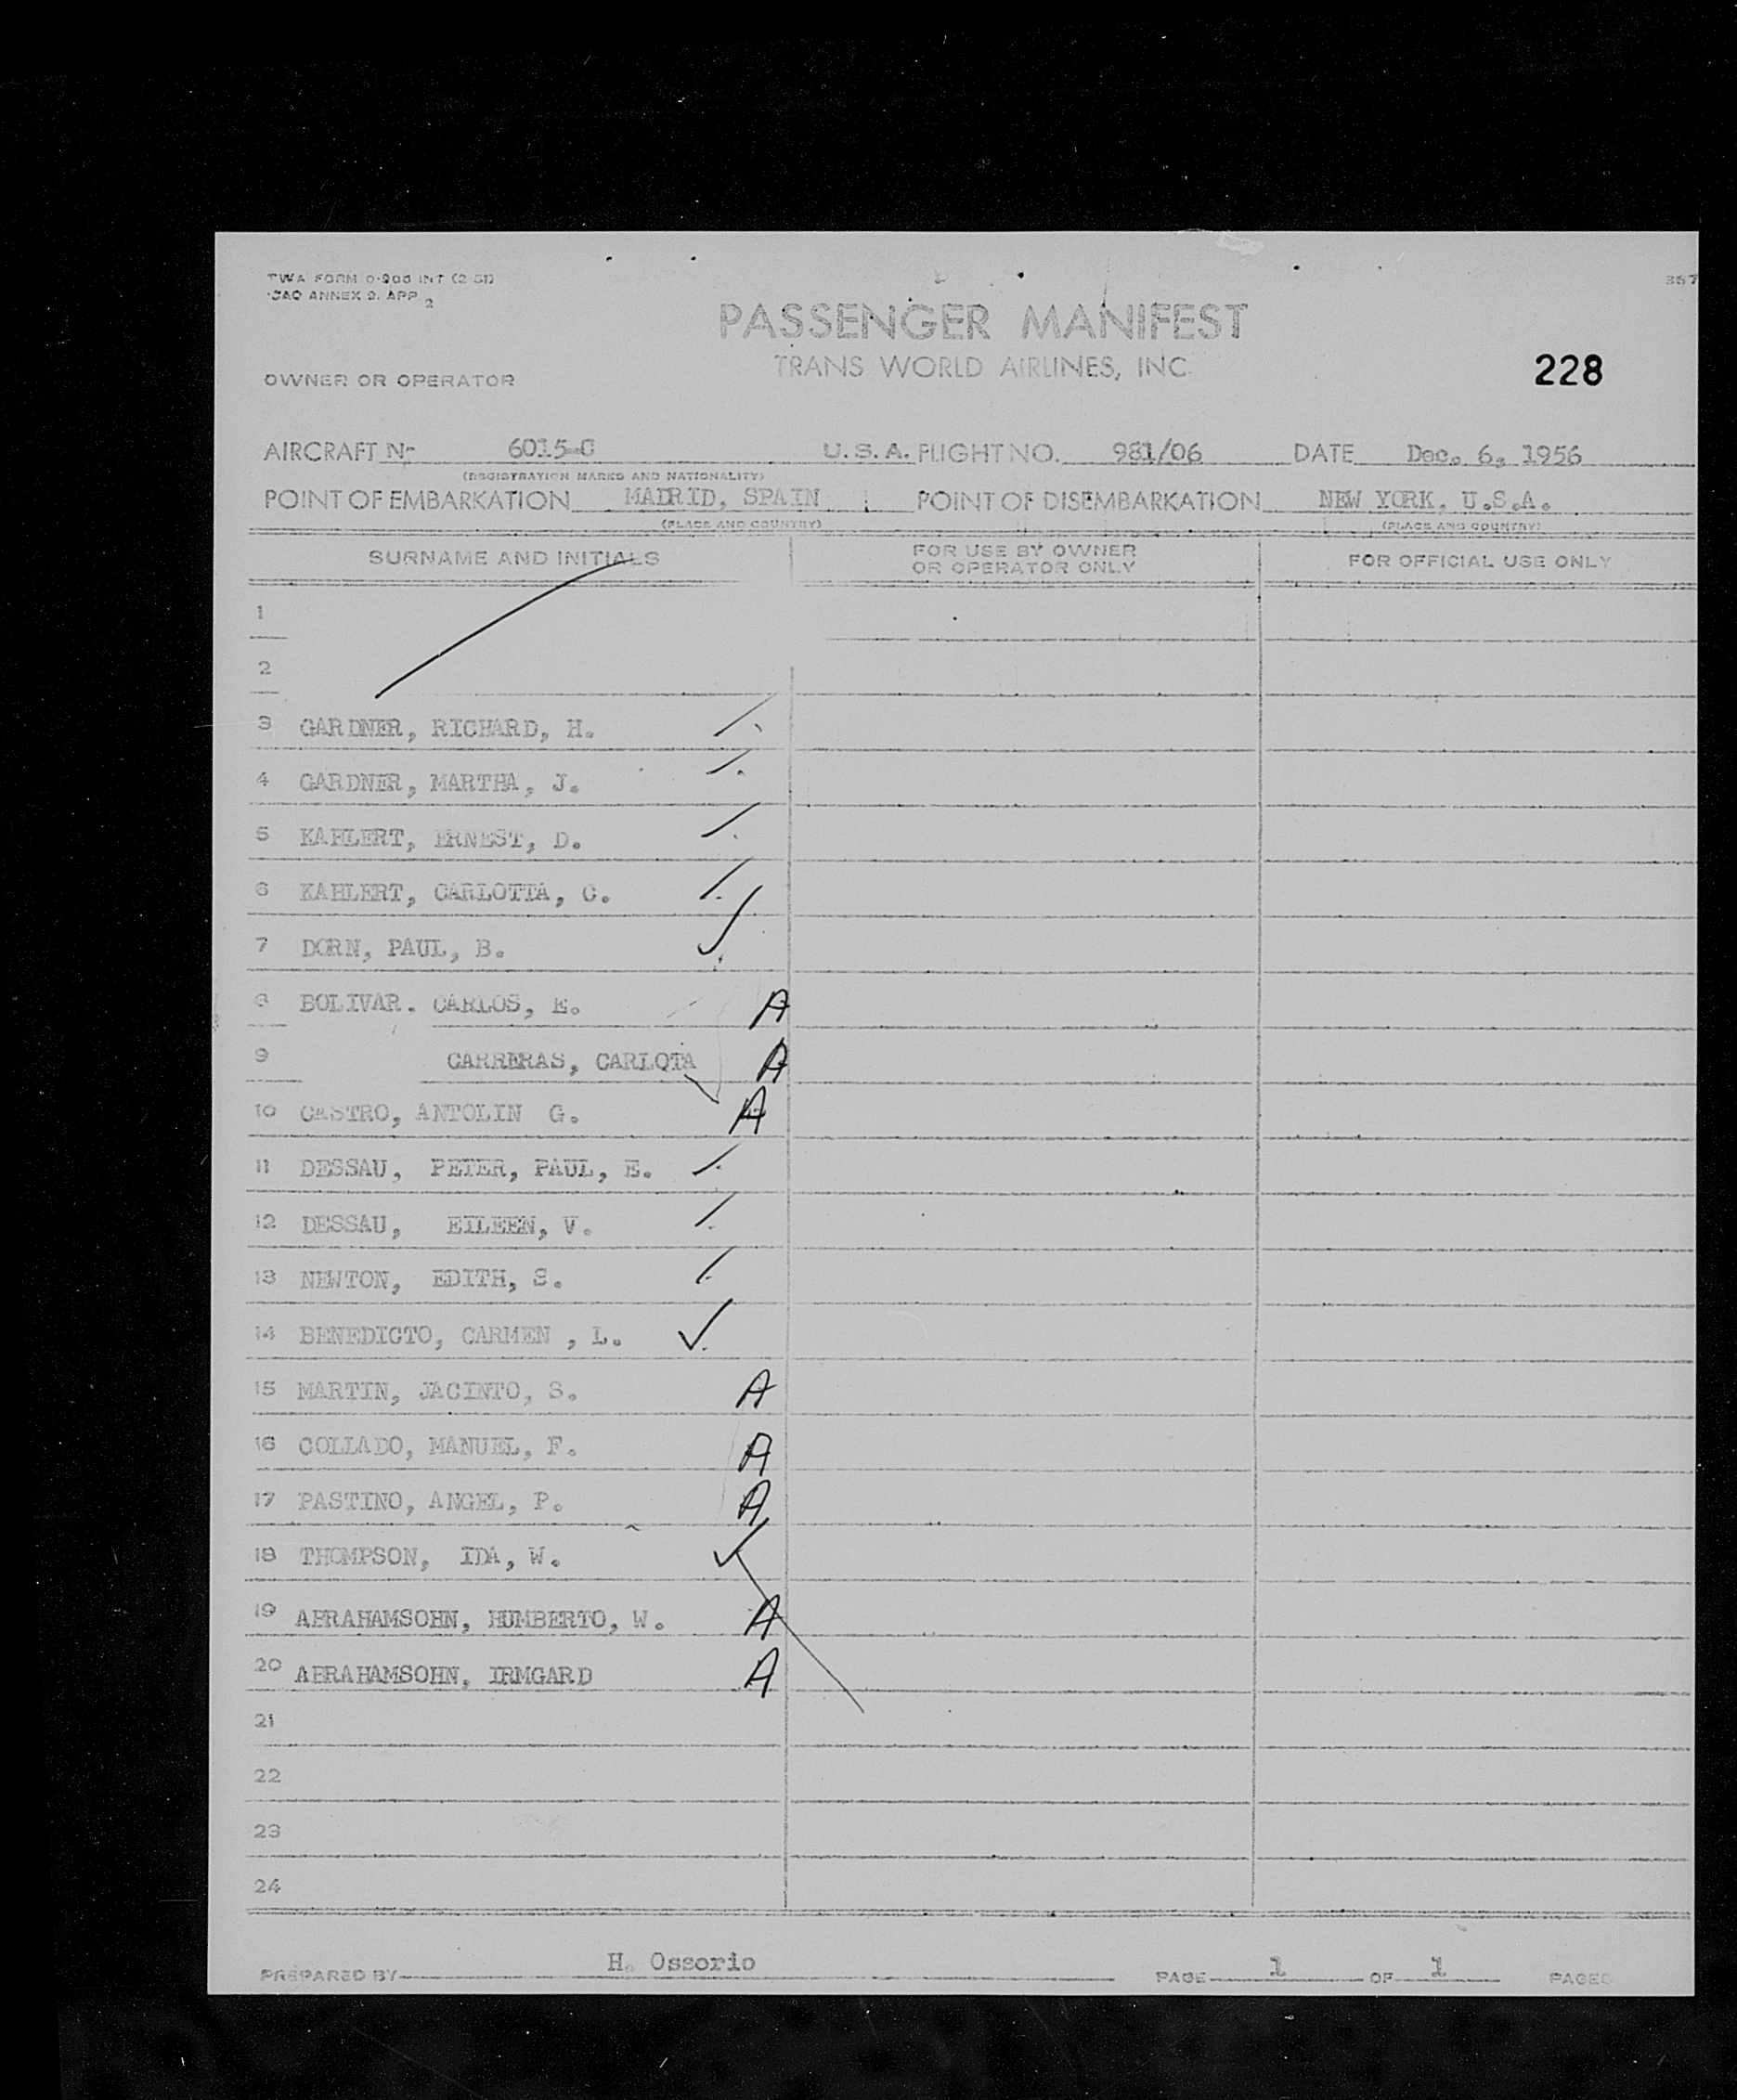 TWA FORM 0-200 INT (2-51)
ICAO ANNEX 9. APP 2
PASSENGER MANIFEST
TRANS WORLD AIRLINES, INC
228
OWNER OR OPERATOR
AIRCRAFT Nº 6015-C U. S. A. FLIGHT NO. 981/06 DATE Dec. 6, 1956
(REGISTRATION MARKS AND NATIONALITY)
POINT OF EMBARKATION MADRID, SPAIN POINT OF DISEMBARKATION NEW YORK, U.S.A.
(PLACE AND COUNTRY) (PLACE AND COUNTRY)
SURNAME AND INITIALS FOR USE BY OWNER OR OPERATOR ONLY FOR OFFICIAL USE ONLY
1
2
3 GARDNER, RICHARD, H.
4 GARDNER, MARTHA, J.
5 KAHLERT, ERNEST, D.
6 KAHLERT, CARLOTTA, C.
7 DORN, PAUL, B.
8 BOLIVAR. CARLOS, E. A
9 CARRERAS, CARLOTA A
10 CASTRO, ANTOLIN G. A
11 DESSAU, PETER, PAUL, E.
12 DESSAU, EILEEN, V.
13 NEWTON, EDITH, S.
14 BENEDICTO, CARMEN , L. ✓
15 MARTIN, JACINTO, S. A
16 COLLADO, MANUEL, F. A
17 PASTINO, ANGEL, P. A
18 THOMPSON, IDA, W. ✓
19 ABRAHAMSOHN, HUMBERTO, W. A
20 ABRAHAMSOHN, IRMGARD A
21
22
23
24
PREPARED BY H. Ossorio PAGE 1 OF 1 PAGES